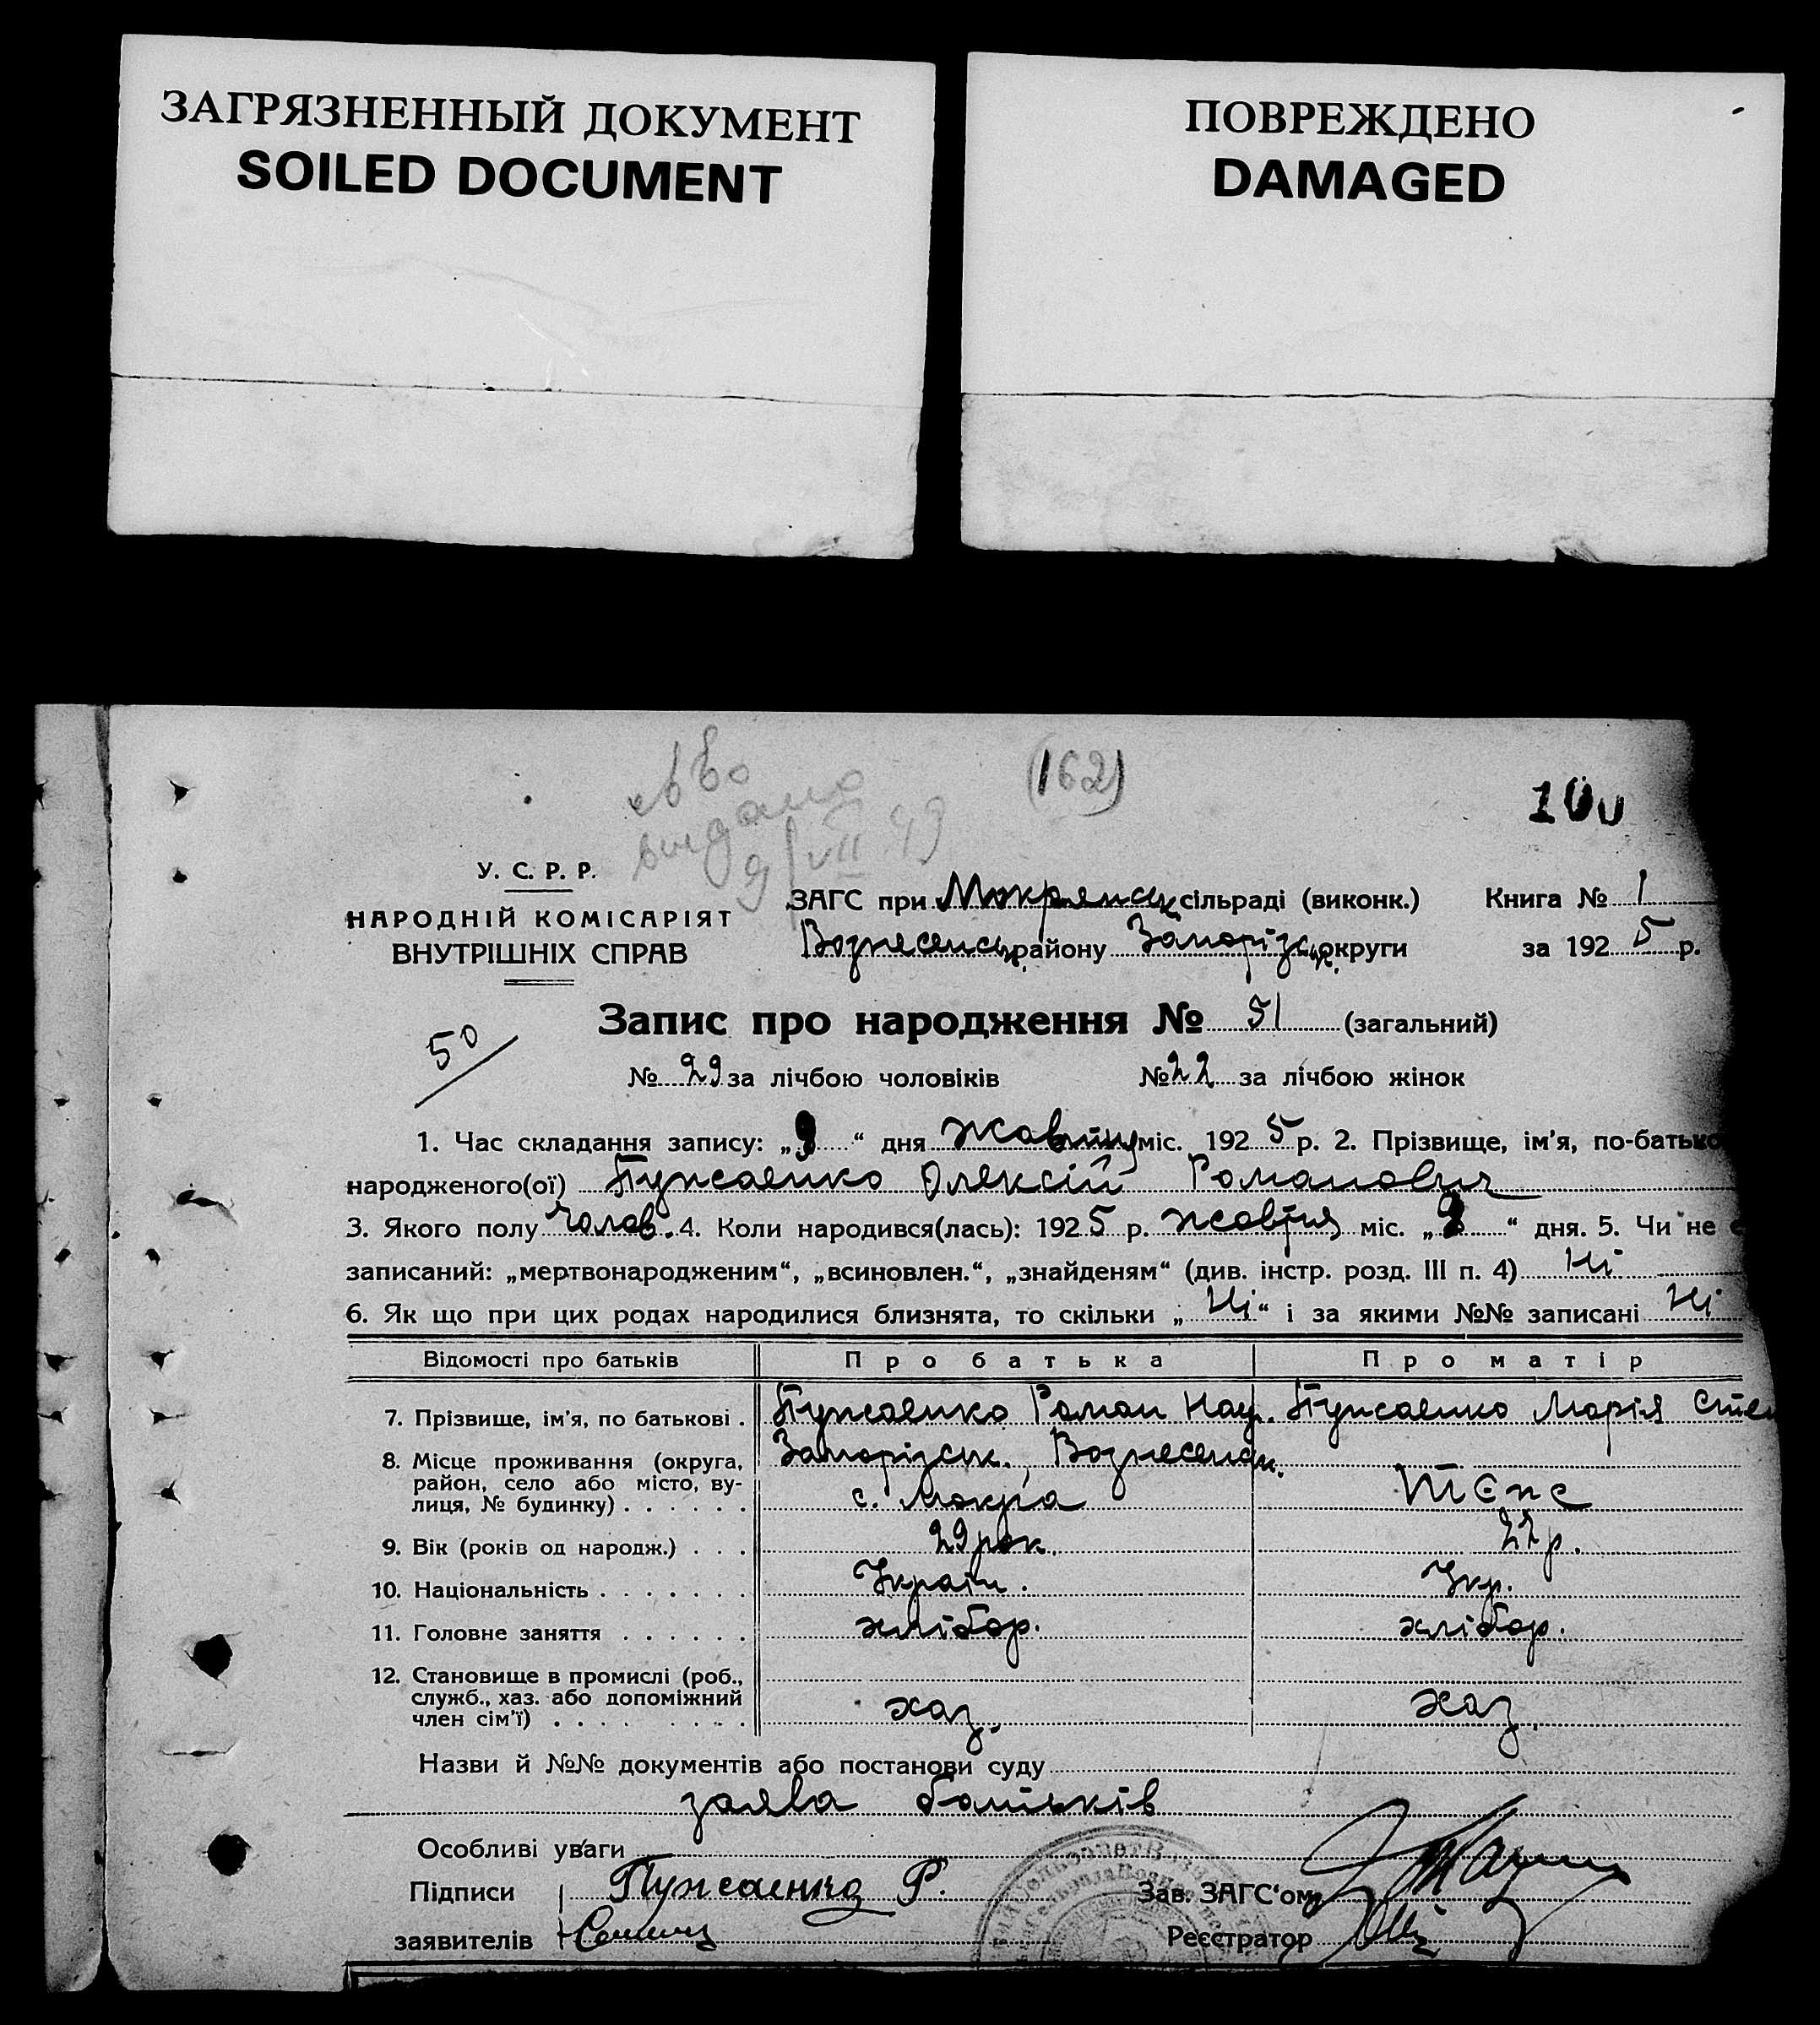 ЗАГРЯЗНЕННЫЙ ДОКУМЕНТ
SOILED DOCUMENT
ПОВРЕЖДЕНО
DAMAGED
(162)
видано
9/VII 49
У. С. Р. Р.
НАРОДНІЙ КОМІСАРІЯТ
ВНУТРІШНІХ СПРАВ
ЗАГС при Мокрянськ сільраді (виконк.) Книга № 1
Вознесенськ. району Запорізьк. округи за 1925 р.
50
Запис про народження № 51 (загальний)
№ 29 за лічбою чоловіків № 22 за лічбою жінок
1. Час складання запису: „9“ дня жовтня міс. 1925 р. 2. Прізвище, ім'я, по-батько
народженого(ої) Пужаенко Олексій Романович
3. Якого полу чолов. 4. Коли народився(лась): 1925 р. жовтня міс. „ “ дня. 5. Чи не є
записаний: „мертвонародженим“, „всиновлен.“, „знайденям“ (див. інстр. розд. III п. 4) Ні
6. Як що при цих родах народилися близнята, то скільки „Ні“ і за якими №№ записані Ні
Відомості про батьків Про батька Про матір
7. Прізвище, ім'я, по батькові . Пужаенко Роман Нау. Пужаенко Марія Степ
8. Місце проживання (округа, Запорізьк., Вознесенськ.
район, село або місто, ву-
лиця, № будинку) . . . . . . с. Мокра теж
9. Вік (років од народж.) . . . 29 рок. 22 р.
10. Національність . . . . . . . Україн. Укр.
11. Головне заняття . . . . . . хлібор. хлібор.
12. Становище в промислі (роб.,
служб., хаз. або допоміжний
член сім'ї) . . . . . . . . хаз. хаз.
Назви й №№ документів або постанови суду
заява батьків
Особливі уваги
Підписи Пужаенко Р. Зав. ЗАГС'ом
заявителів Реєстратор